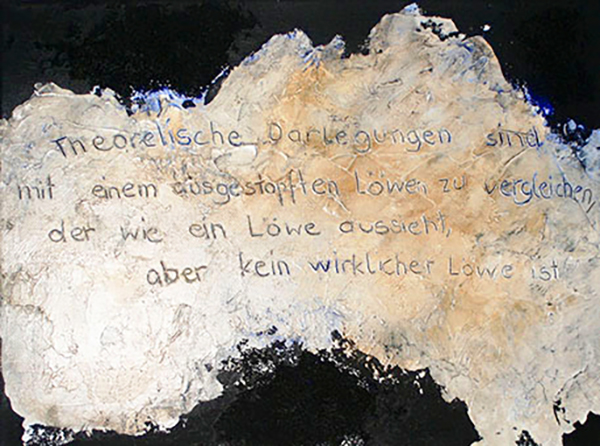 Theoretische Darlegungen sind
mit einem ausgestopften Löwen zu vergleichen,
der wie ein Löwe aussieht,
aber kein wirklicher Löwe ist